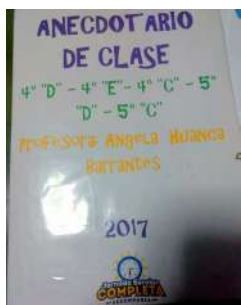 ANECDOTARIO
DE CLASE
4° "D" - 4° "E" - 4° "C" - 5°
"D" - 5° "C"
Profesora Angela Huanca
Barrantes
2017
Jornada Escolar
COMPLETA